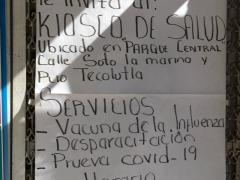 le invita al:
KIOSCO DE SALUD
Ubicado en PARQUE CENTRAL
Calle Soto la marina y
Rio Tecolutla
SERVICIOS
- Vacuna de la Influenza
- Desparacitación
- Prueva covid-19
Horario